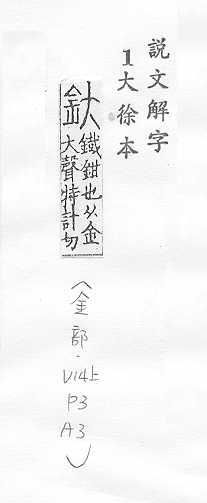 説文解字
1大徐本
釱
鐵鉗也从金
大聲特計切
(金部·V14上
P3
A3)